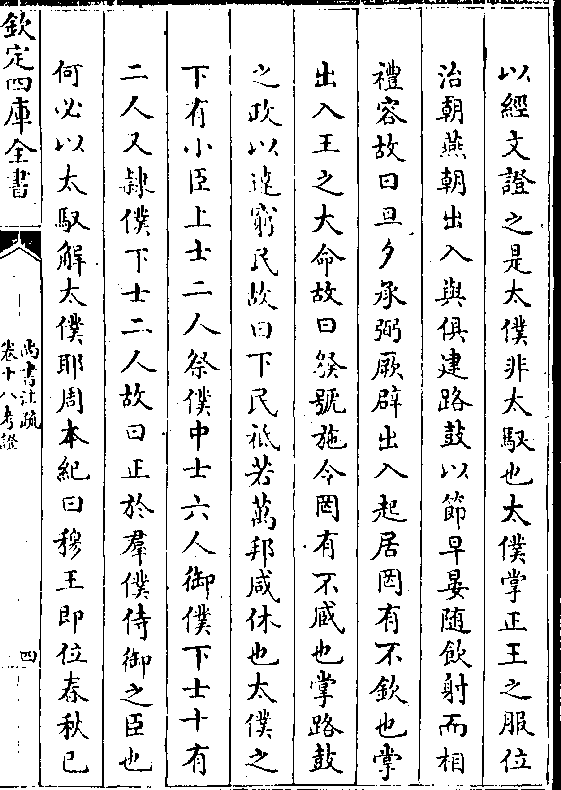 以經文證之是太僕非太馭也太僕掌正王之服位
治朝燕朝出入與俱建路鼓以節早晏随飲射而相
禮容故曰旦夕承弼厥辟出入起居罔有不欽也掌
出入王之大命故曰發號施令罔有不臧也掌路鼓
之政以達窮民故曰下民祗若萬邦咸休也太僕之
下有小臣上士二人祭僕中士六人御僕下士十有
二人又隷僕下士二人故曰正於羣僕侍御之臣也
何必以太馭解太僕耶周本紀曰穆王即位春秋已
欽定四庫全書
尚書注疏
卷十八考證
四